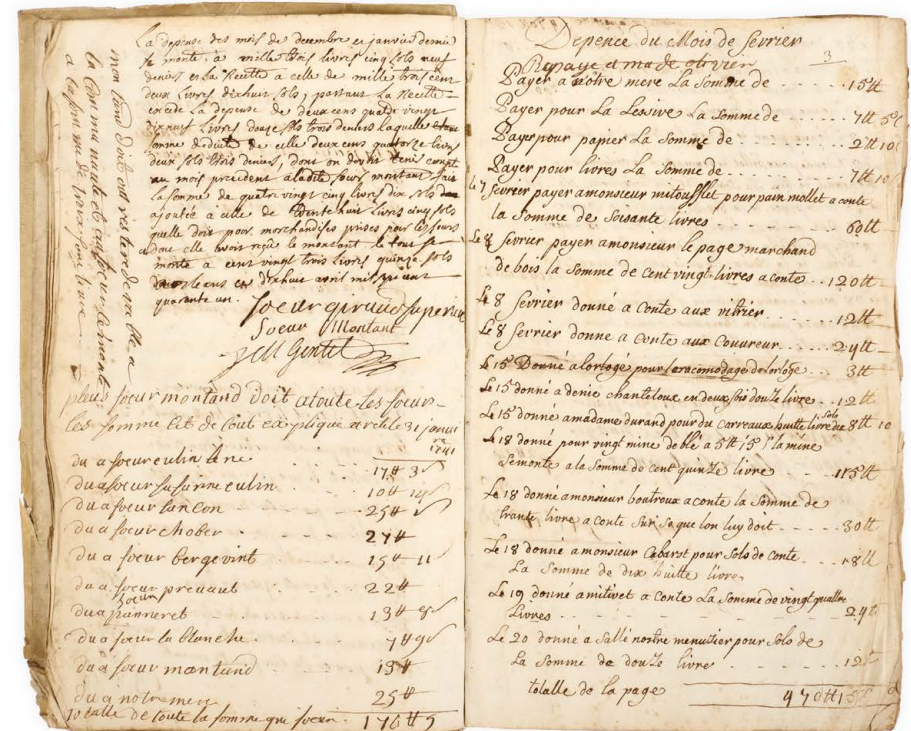 La depense des mois de decembre et janvier dernier
se monte a mille trois livres cinq sols neuf
deniers et la Recette a celle de mille trois cent
deux livres dixhuit sols, partant la Recette
excede la depense de deux cens quatre vingt
dixneuf livres douze sols trois deniers laquelle
somme deduite de celle deux cens quatorze livres
deux sols trois deniers, dont on devoit tenir compte
au mois precedent a ladite soeur montant fait
la somme de quatre vingt cinq livres dix sols
ajoutée a celle de trente huit livres cinq sols
quelle doit pour marchandises prises pour les soeurs
et donc elle avoit reçu le montant le tout se
monte a cent vingt trois livres quinze sols
a orleans ce dixhuit avril mil sept cent
quarante un.
soeur giraud superieure
soeur Montant
JM Gentil
mon tant doit
la communauté
a la somme de trois livre
plus soeur montand doit a toute les soeurs
les somme Et de tout explique arete le 31 janvier
1741
du a soeur culin l'ene 17tt 3s
du a soeur susanne culin 10tt 14s
du a soeur lancon 25tt
du a soeur chober 27tt
du a soeur bergevint 15tt 11s
du a soeur prevaut 22tt
du a soeur panneret 13tt
du a soeur la blanche 7tt 9s
du a soeur montand 13tt
du a notre mere 25tt
totalle de toute la somme que soeur 170tt 5
Depence du Mois de fevrier
3
Payer a nôtre mere La Somme de 15tt
Payer pour La Lessive La somme de 7tt 5s
Payer pour papier La Somme de 2tt 10s
Payer pour livres La Somme de 7tt 10
le 7 fevrier payer amonsieur mitoufflet pour pain mollet a conte
la Somme de Soisante livres 60tt
Le 8 fevrier payer amonsieur le page marchand
de bois la Somme de Cent vingt livres a conte 120tt
Le 8 fevrier donné a Conte aux vitrier 12tt
Le 8 fevrier donne a conte aux Couvreur 24tt
Le 15 Donné a lorlogé pour le racomodage de lorloge 3tt
Le 15 donné a denie chanteloux en deux fois douze livre 12tt
Le 15 donné amadame durand pour du Carreaux huitte livre dix sols 8tt 10
Le 18 donné pour vingt mine de blé a 5tt 15s la mine
Semonte a la Somme de Cent quinze livre 115tt
Le 18 donné amonsieur boutroux a conte la Somme de
trante livre a conte Sur Seque lon luy doit 30tt
Le 18 donné a monsieur pour Sols de conte 18tt
La Somme de dix huitte livre
Le 19 donné amitivet a Conte La Somme de vingt quattre
Livres 24tt
Le 20 donné a Sallé nostre menuisier pour Solo de
La Somme de douze livre 12tt
totalle de la page 470tt